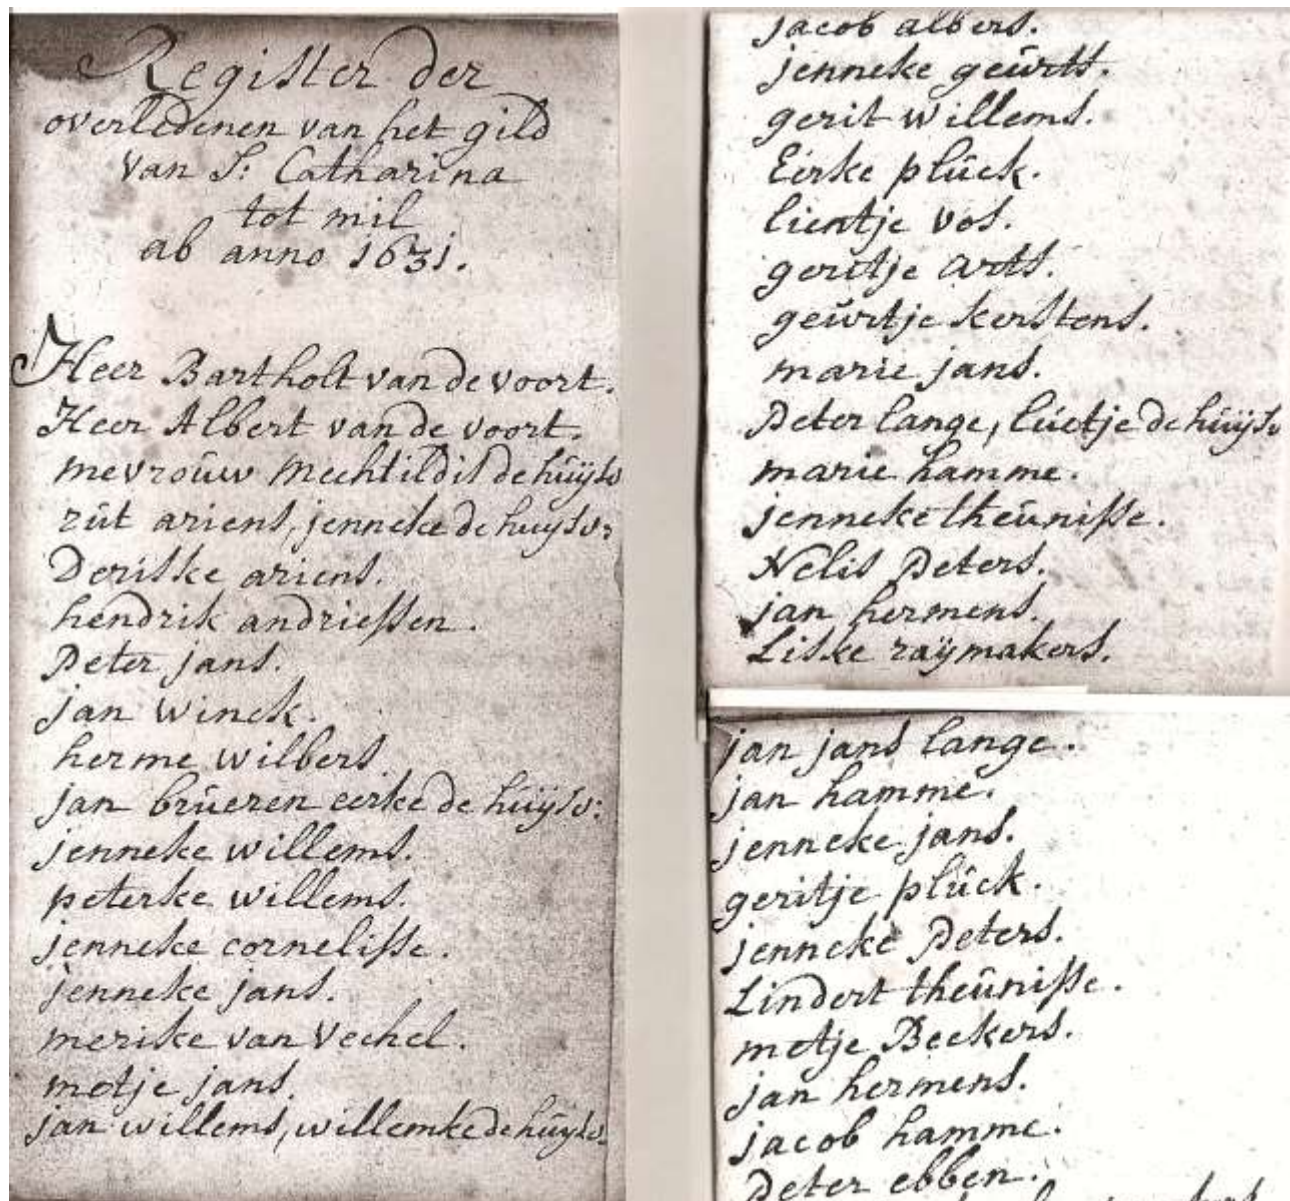 Register der
overledenen van het gild
van S: Catharina
tot mil
ab anno 1631.
Heer Bartholt van de voort.
Heer Albert van de voort.
mevroŭw Mechtildis de hŭÿsv
rŭt ariens, jenneke de huysv:
Deriske ariens.
hendrik andriessen.
Peter jans.
jan winck.
herme wilbers.
jan brŭeren eerke de hŭijsv:
jenneke willems.
peterke willems.
jenneke cornelisse.
jenneke jans.
merike van Vechel.
metje jans.
jan willems, willemke de hŭysv.
jacob albers.
jenneke geŭrts.
gerit willems.
Eirke plŭck.
lientje vos.
geritje arts.
geŭrtje kerstens.
marie jans.
Peter lange, lŭetje de hŭijsv
marie hamme.
jenneke theŭnisse.
Nelis Peters.
jan hermens.
Liske raÿmakers.
jan jans lange.
jan hamme.
jenneke jans.
geritje plŭck.
jenneke Peters.
Lindert theŭnisse.
metje Beckers.
jan hermens.
jacob hamme.
Peter ebben.